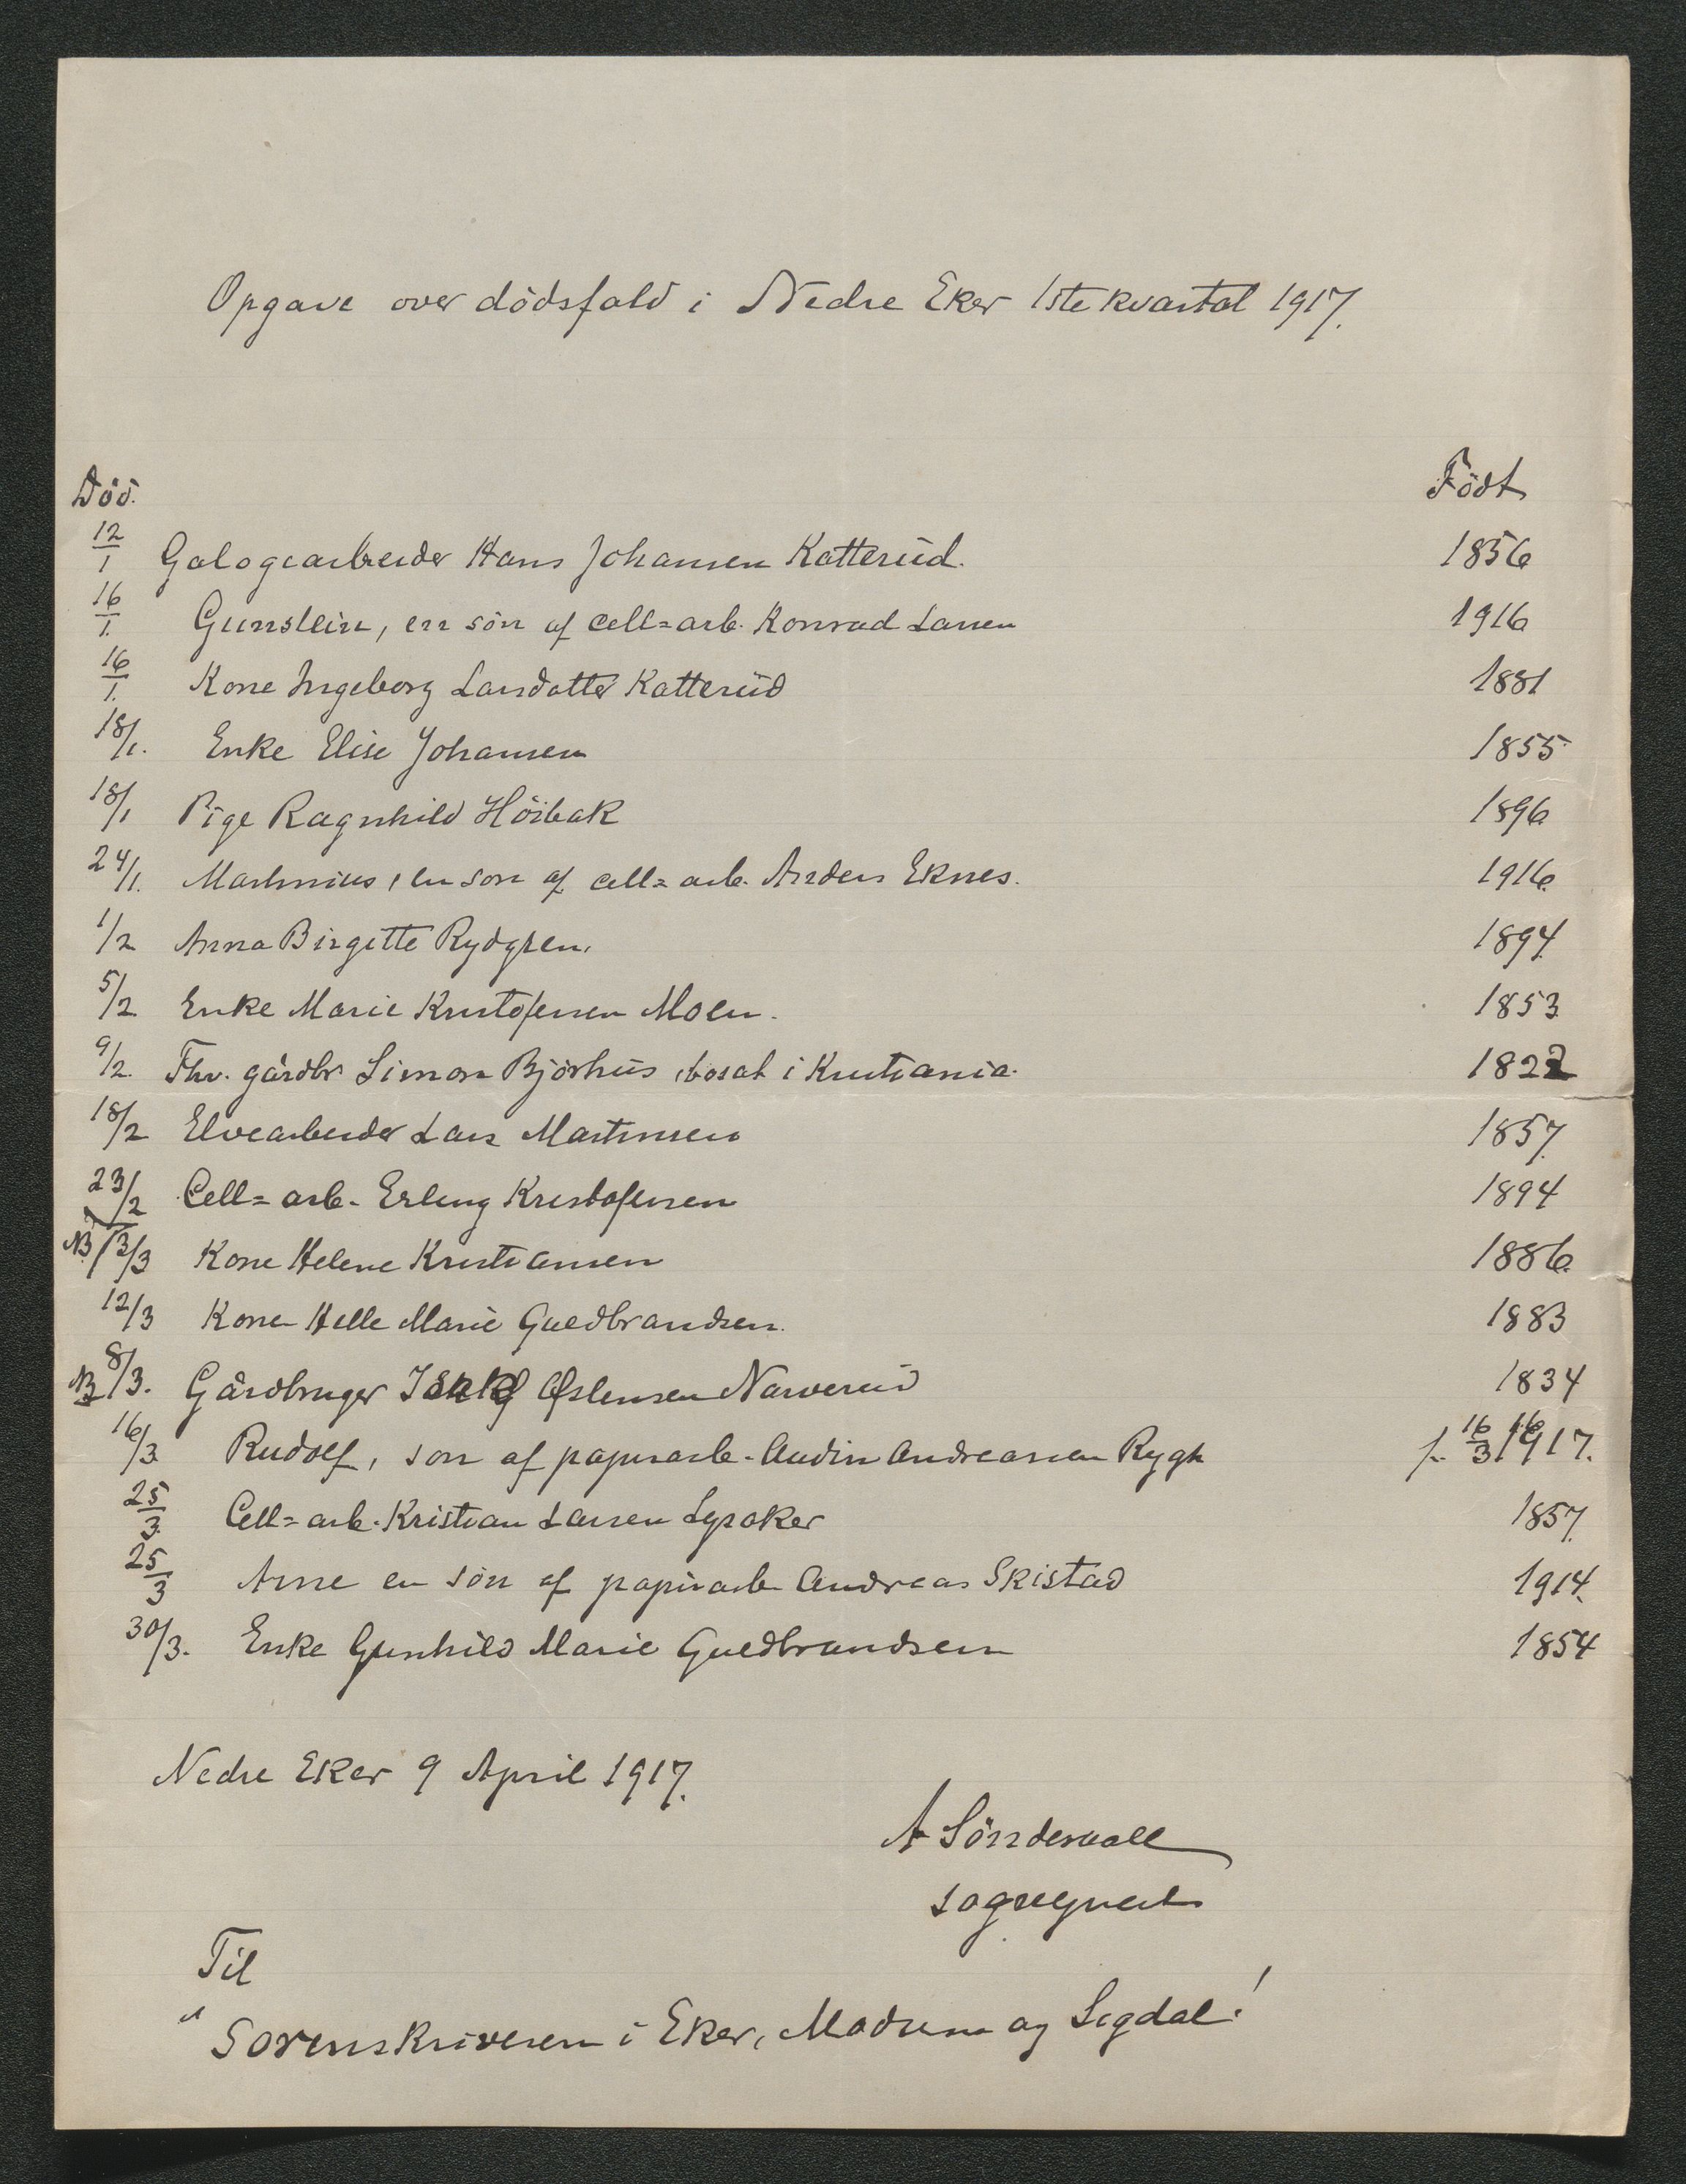 Opgave over dödsfald i Nedre Eker 1ste kvartal 1917.
Död. Födt
12/1 Galogearbeider Hans Johansen Katterud. 1856
16/1. Gunslein, en sön af cell=arb. Konrad Larsen 1916
16/1. Kone Ingeborg Larsdatter Katterud 1881
18/1. Enke Elise Johansen 1855
18/1 Pige Ragnhild Höibak 1896
24/1. Martinius, en son af cell=arb. Anders Eknes. 1916.
1/2 Anna Birgitte Rydgren. 1894.
5/2 Enke Marie Kristofersen Moen. 1853
9/2. Fhv. gårdbr Simon Björhus, bosat i Kristiania. 1822
18/2 Elvearbeider Lars Martinsen 1857.
23/2 Cell=arb. Erling Kristofersen 1894
NB 13/3 Kone Helene Kristiansen 1886.
12/3 Kone Helle Marie Guldbrandsen. 1883
NB 8/3. Gårdbruger Øslensen Narverud 1834
16/3 Rudolf, son af papirarb. Audin Andreassen Rygh f. 16/3 1917.
25/3 Cell=arb. Kristian Larsen Lysaker 1857.
25/3 Arne en sön af papirarb Andreas Skistad 1914.
30/3. Enke Gunhild Marie Guldbrandsen 1854
Nedre Eker 9 April 1917.
A Sönderaall
sogneprest
Til
Sorenskriveren i Eker, Modum og Sigdal!